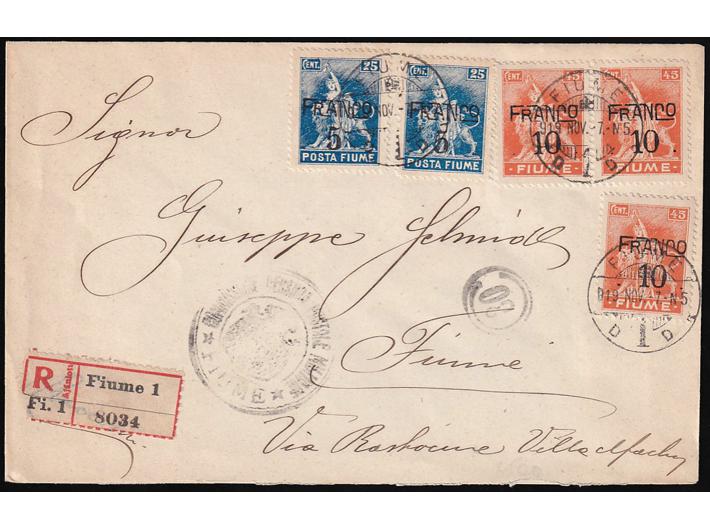 CENT. 25
FRANCO
5
POSTA FIUME
CENT. 25
FRANCO
5
POSTA FIUME
CENT. 45
FRANCO
10
FIUME
45
FRANCO
10
FIUME
FIUME
919 NOV.-7.-N5
D 1 D
Signor
Giuseppe Schmidt
CENT. 45
FRANCO
10
FIUME
FIUME
919 NOV.-7.-N5
D 1 D
FIUME
Fiume
R
Ajánlott
Fiume 1
Fi. 1
8034
Via